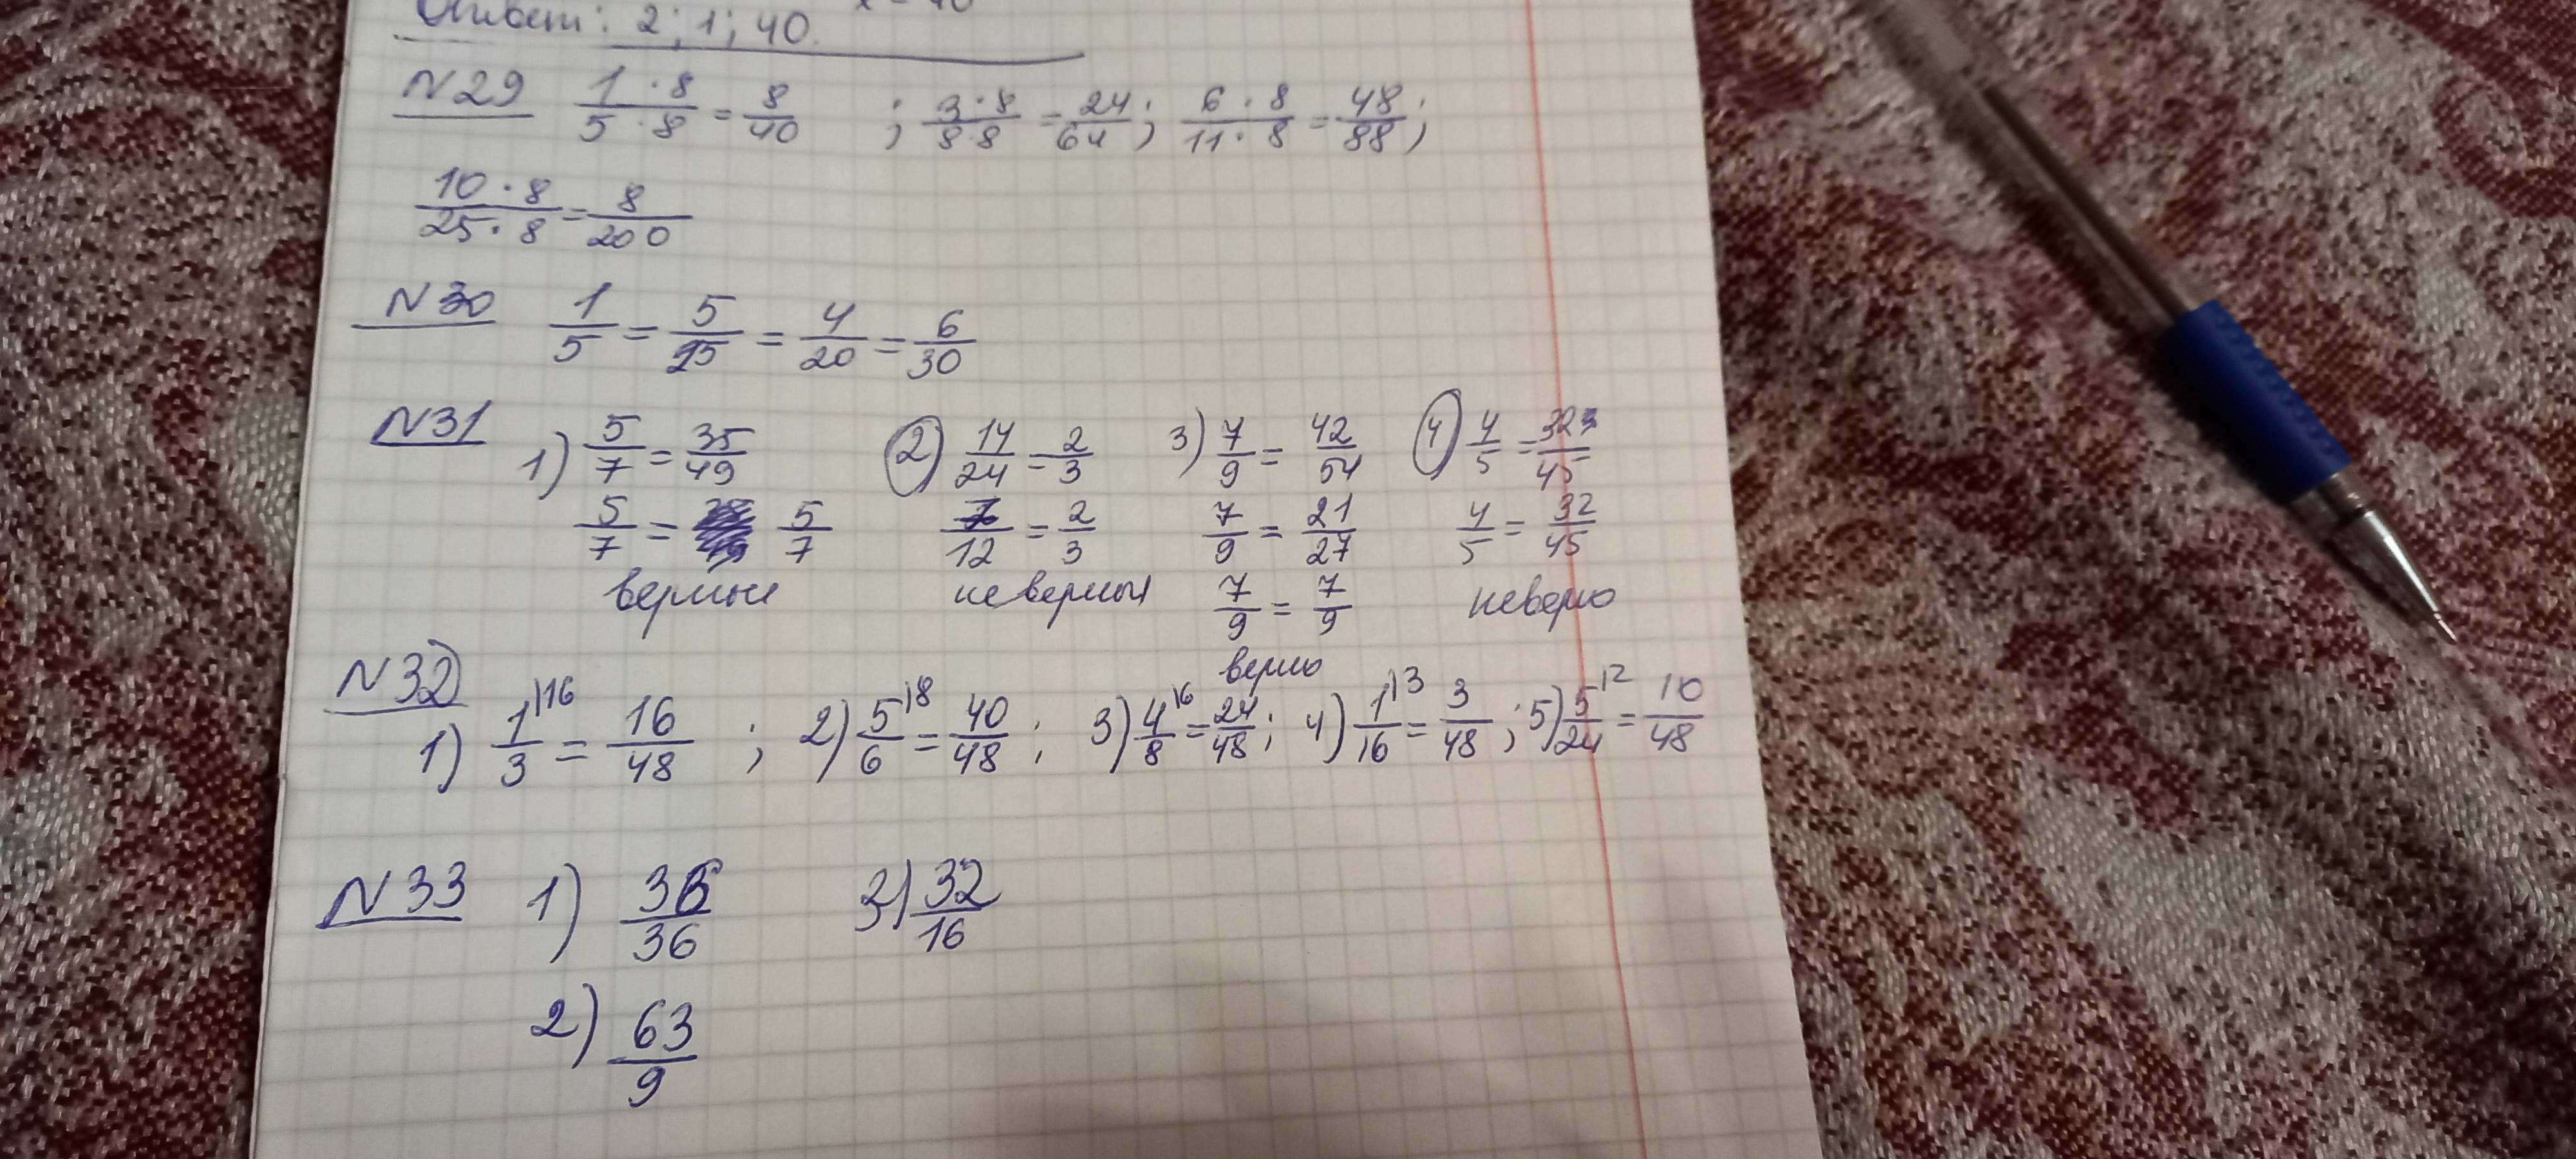 Ответ: 2; 1; 40.
N29 1·8/5·8 = 8/40 ; 3·8/8·8 = 24/64; 6·8/11·8 = 48/88;
10·8/25·8 = 8/200
N30 1/5 = 5/25 = 4/20 = 6/30
N31 1) 5/7 = 35/49 2) 14/24 = 2/3 3) 7/9 = 42/54 4) 4/5 = 32/45
5/7 = 5/7 7/12 = 2/3 7/9 = 21/27 4/5 = 32/45
верный неверный 7/9 = 7/9 неверно
верно
N32
1) 1/3 )16 = 16/48 ; 2) 5/6 )8 = 40/48 ; 3) 4/8 )6 = 24/48; 4) 1/16 )3 = 3/48 ; 5) 5/24 )2 = 10/48
N33 1) 36/36 3) 32/16
2) 63/9